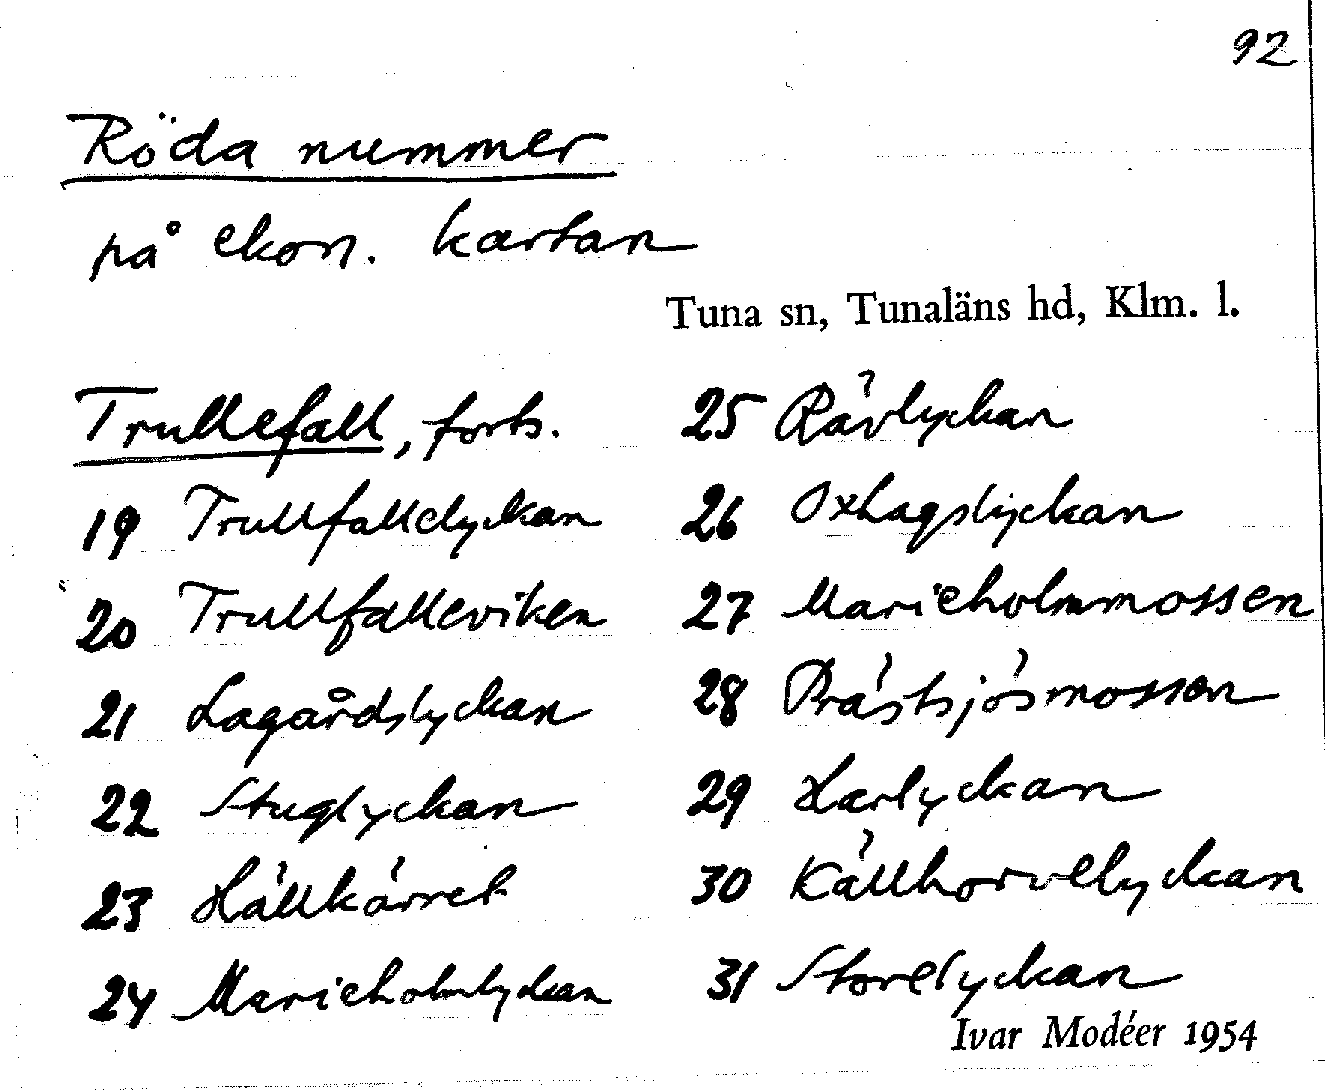 92
Röda nummer
på ekon. kartan
Tuna sn, Tunaläns hd, Klm. l.
Trullefall, forts.
19 Trullfallelyckan
20 Trullfalleviken
21 Lagårdslyckan
22 Stuglyckan
23 Hällkärret
24 Marieholmlyckan
25 Rävlyckan
26 Oxhagslyckan
27 Marieholmmossen
28 Prästsjösmossen
29
30 Källhorvelyckan
31 Storelyckan
Ivar Modéer 1954